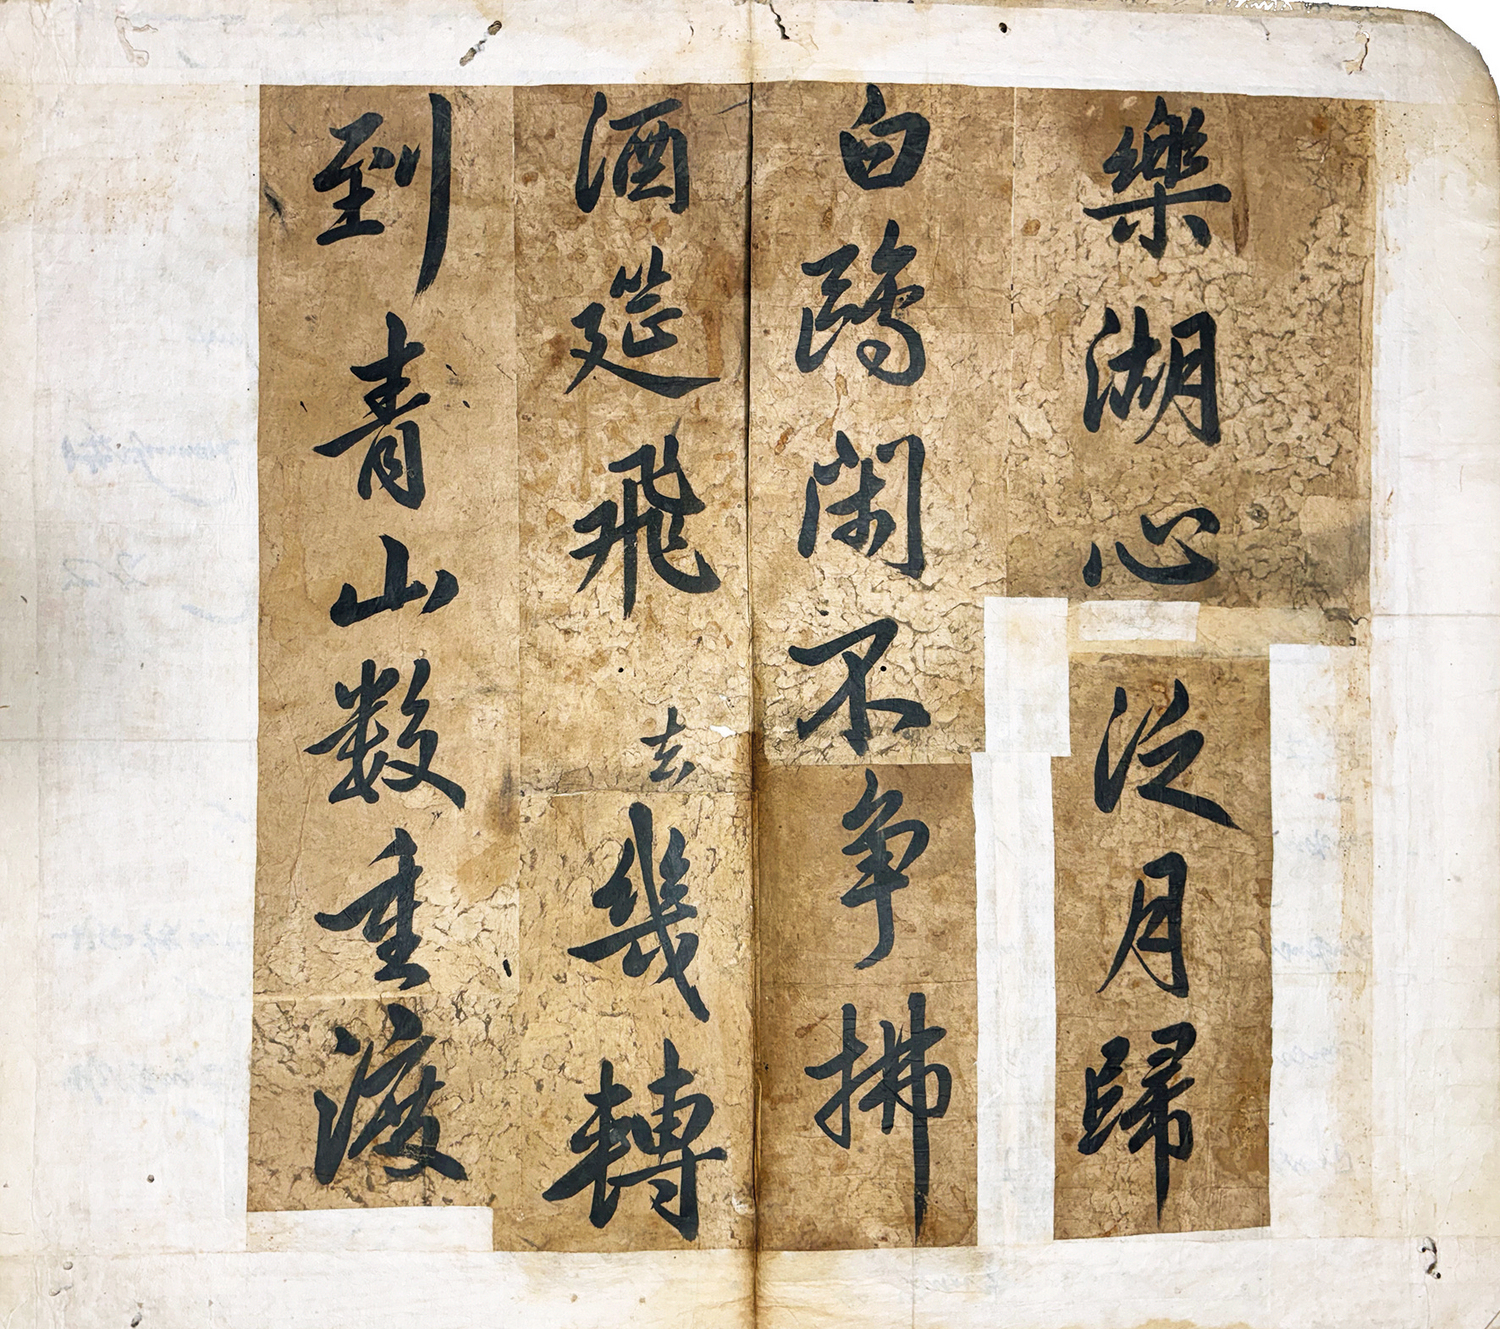 樂湖心泛月歸
白鷗閑不争拂
酒筵飛去幾轉
到青山数重渡